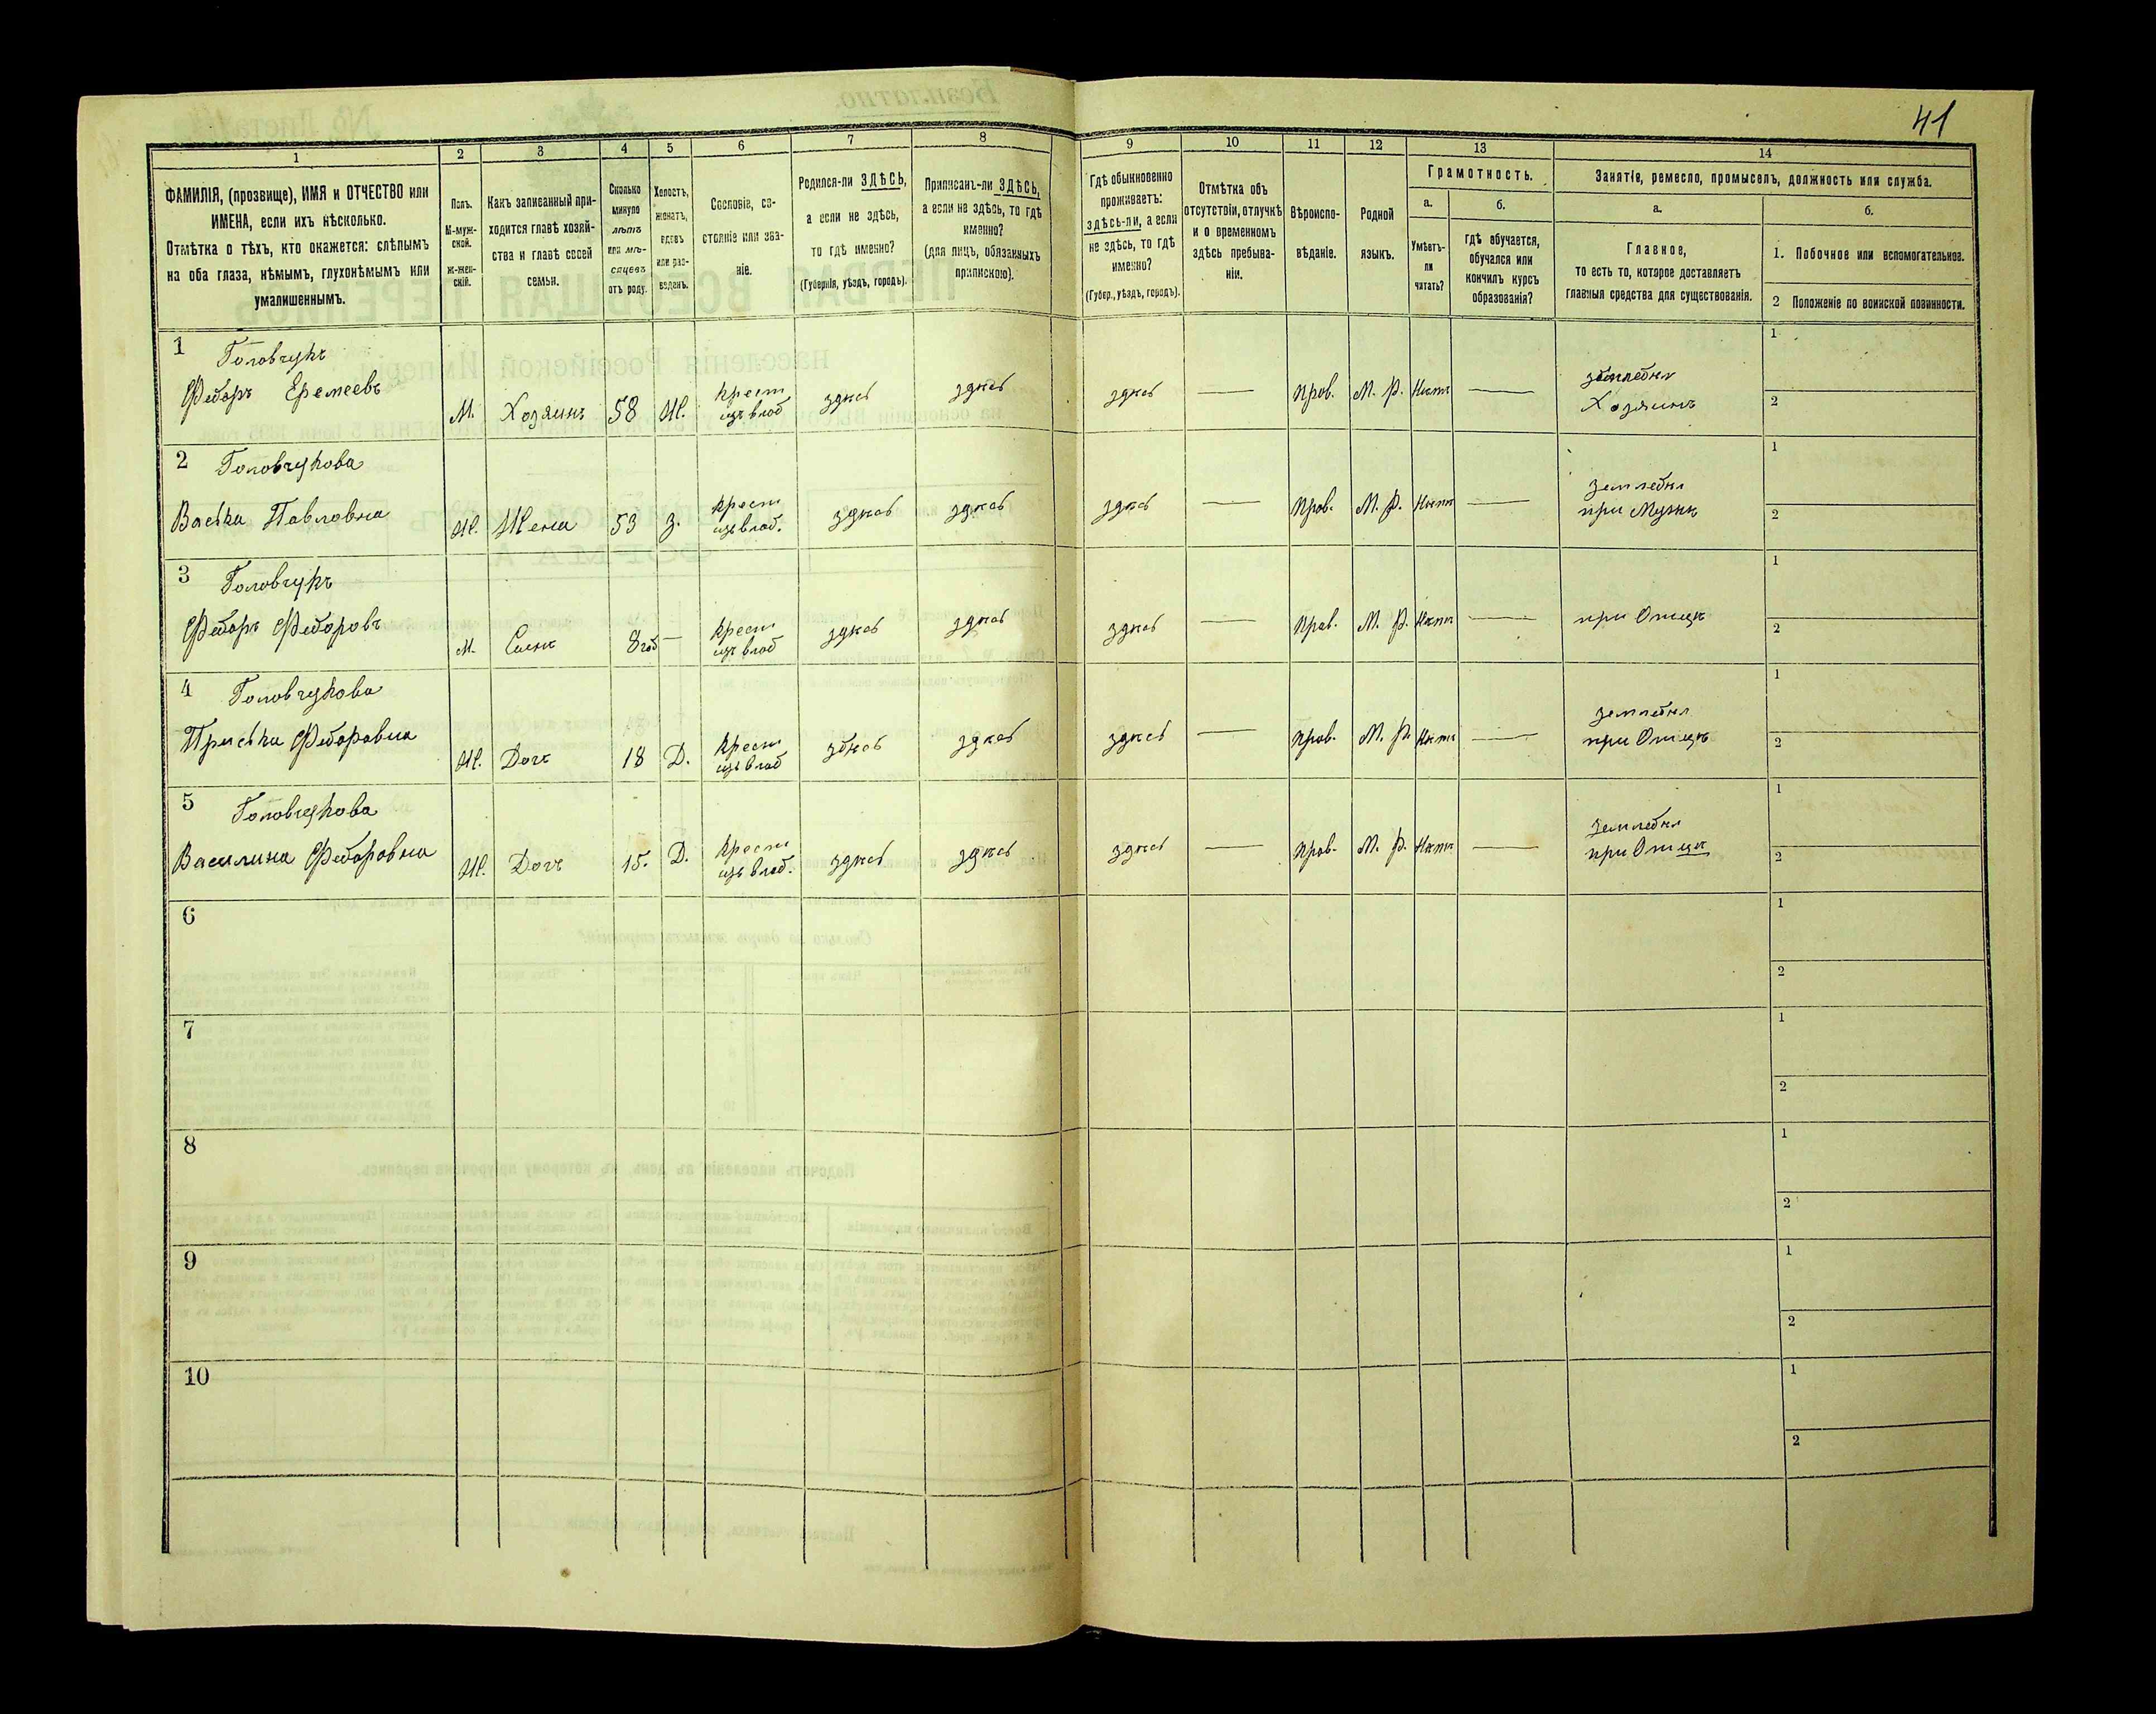 41
1 2 3 4 5 6 7 8 9 10 11 12 13 14
ФАМИЛІЯ, (прозвище), ИМЯ и ОТЧЕСТВО или
ИМЕНА, если ихъ нѣсколько.
Отмѣтка о тѣхъ, кто окажется: слѣпымъ
на оба глаза, нѣмымъ, глухонѣмымъ или
умалишеннымъ.
Полъ.
М-муж-
ской.
ж-жен-
скій.
Какъ записанный при-
ходится главѣ хозяй-
ства и главѣ своей
семьи.
Сколько
минуло
лѣтъ
или мѣ-
сяцевъ
отъ роду.
Холостъ,
женатъ,
вдовъ
или раз-
веденъ.
Сословіе, со-
стояніе или зва-
ніе.
Родился-ли ЗДѢСЬ,
а если не здѣсь,
то гдѣ именно?
(Губернія, уѣздъ, городъ).
Приписанъ-ли ЗДѢСЬ,
а если не здѣсь, то гдѣ
именно?
(для лицъ, обязанныхъ
припискою).
Гдѣ обыкновенно
проживаетъ:
здѣсь-ли, а если
не здѣсь, то гдѣ
именно?
(Губер., уѣздъ, городъ).
Отмѣтка объ
отсутствіи, отлучкѣ
и о временномъ
здѣсь пребыва-
ніи.
Вѣроиспо-
вѣданіе.
Родной
языкъ.
Грамотность.
а.
Умѣетъ-
ли
читать?
б.
гдѣ обучается,
обучался или
кончилъ курсъ
образованія?
Занятіе, ремесло, промыселъ, должность или служба.
а.
Главное,
то есть то, которое доставляетъ
главныя средства для существованія.
б.
1. Побочное или вспомогательное.
2 Положеніе по воинской повинности.
1 Головчукъ
Федоръ Еремеевъ М. Хозяинъ 58 Ж. крест изъ влад здѣсь здѣсь здѣсь — прав. М. Р. Нѣтъ — землед Хозяинъ 1 2
2 Головчукова
Васька Павловна Ж. Жена 53 З. крест изъ влад. здѣсь здѣсь здѣсь — прав. М. Р. Нѣтъ — землед при Мужѣ 1 2
3 Головчукъ
Федоръ Федоровъ М. Сынъ 8 — крест изъ влад здѣсь здѣсь здѣсь — прав. М. Р. Нѣтъ — при Отцѣ 1 2
4 Головчукова
Приська Федоровна Ж. Дочь 18 Д. крест изъ влад здѣсь здѣсь здѣсь — прав. М. Р. Нѣтъ — землед при Отцѣ 1 2
5 Головчукова
Василина Федоровна Ж. Дочь 15. Д. крест изъ влад. здѣсь здѣсь здѣсь — прав. М. Р. Нѣтъ — землед при Отцѣ 1 2
6 1 2
7 1 2
8 1 2
9 1 2
10 1 2